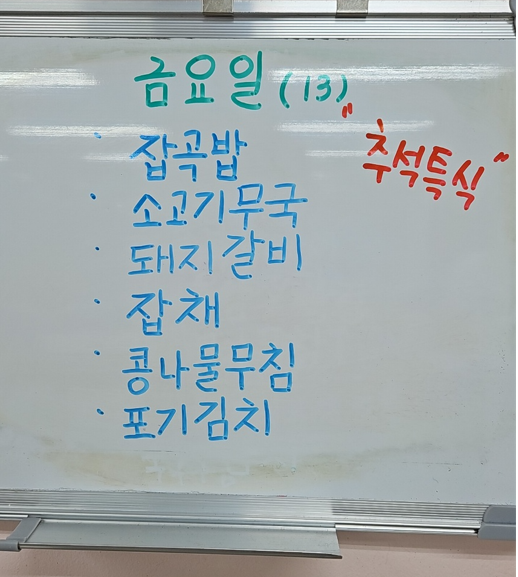 금요일 (13)
"추석특식"
· 잡곡밥
· 소고기무국
· 돼지갈비
· 잡채
· 콩나물무침
· 포기김치